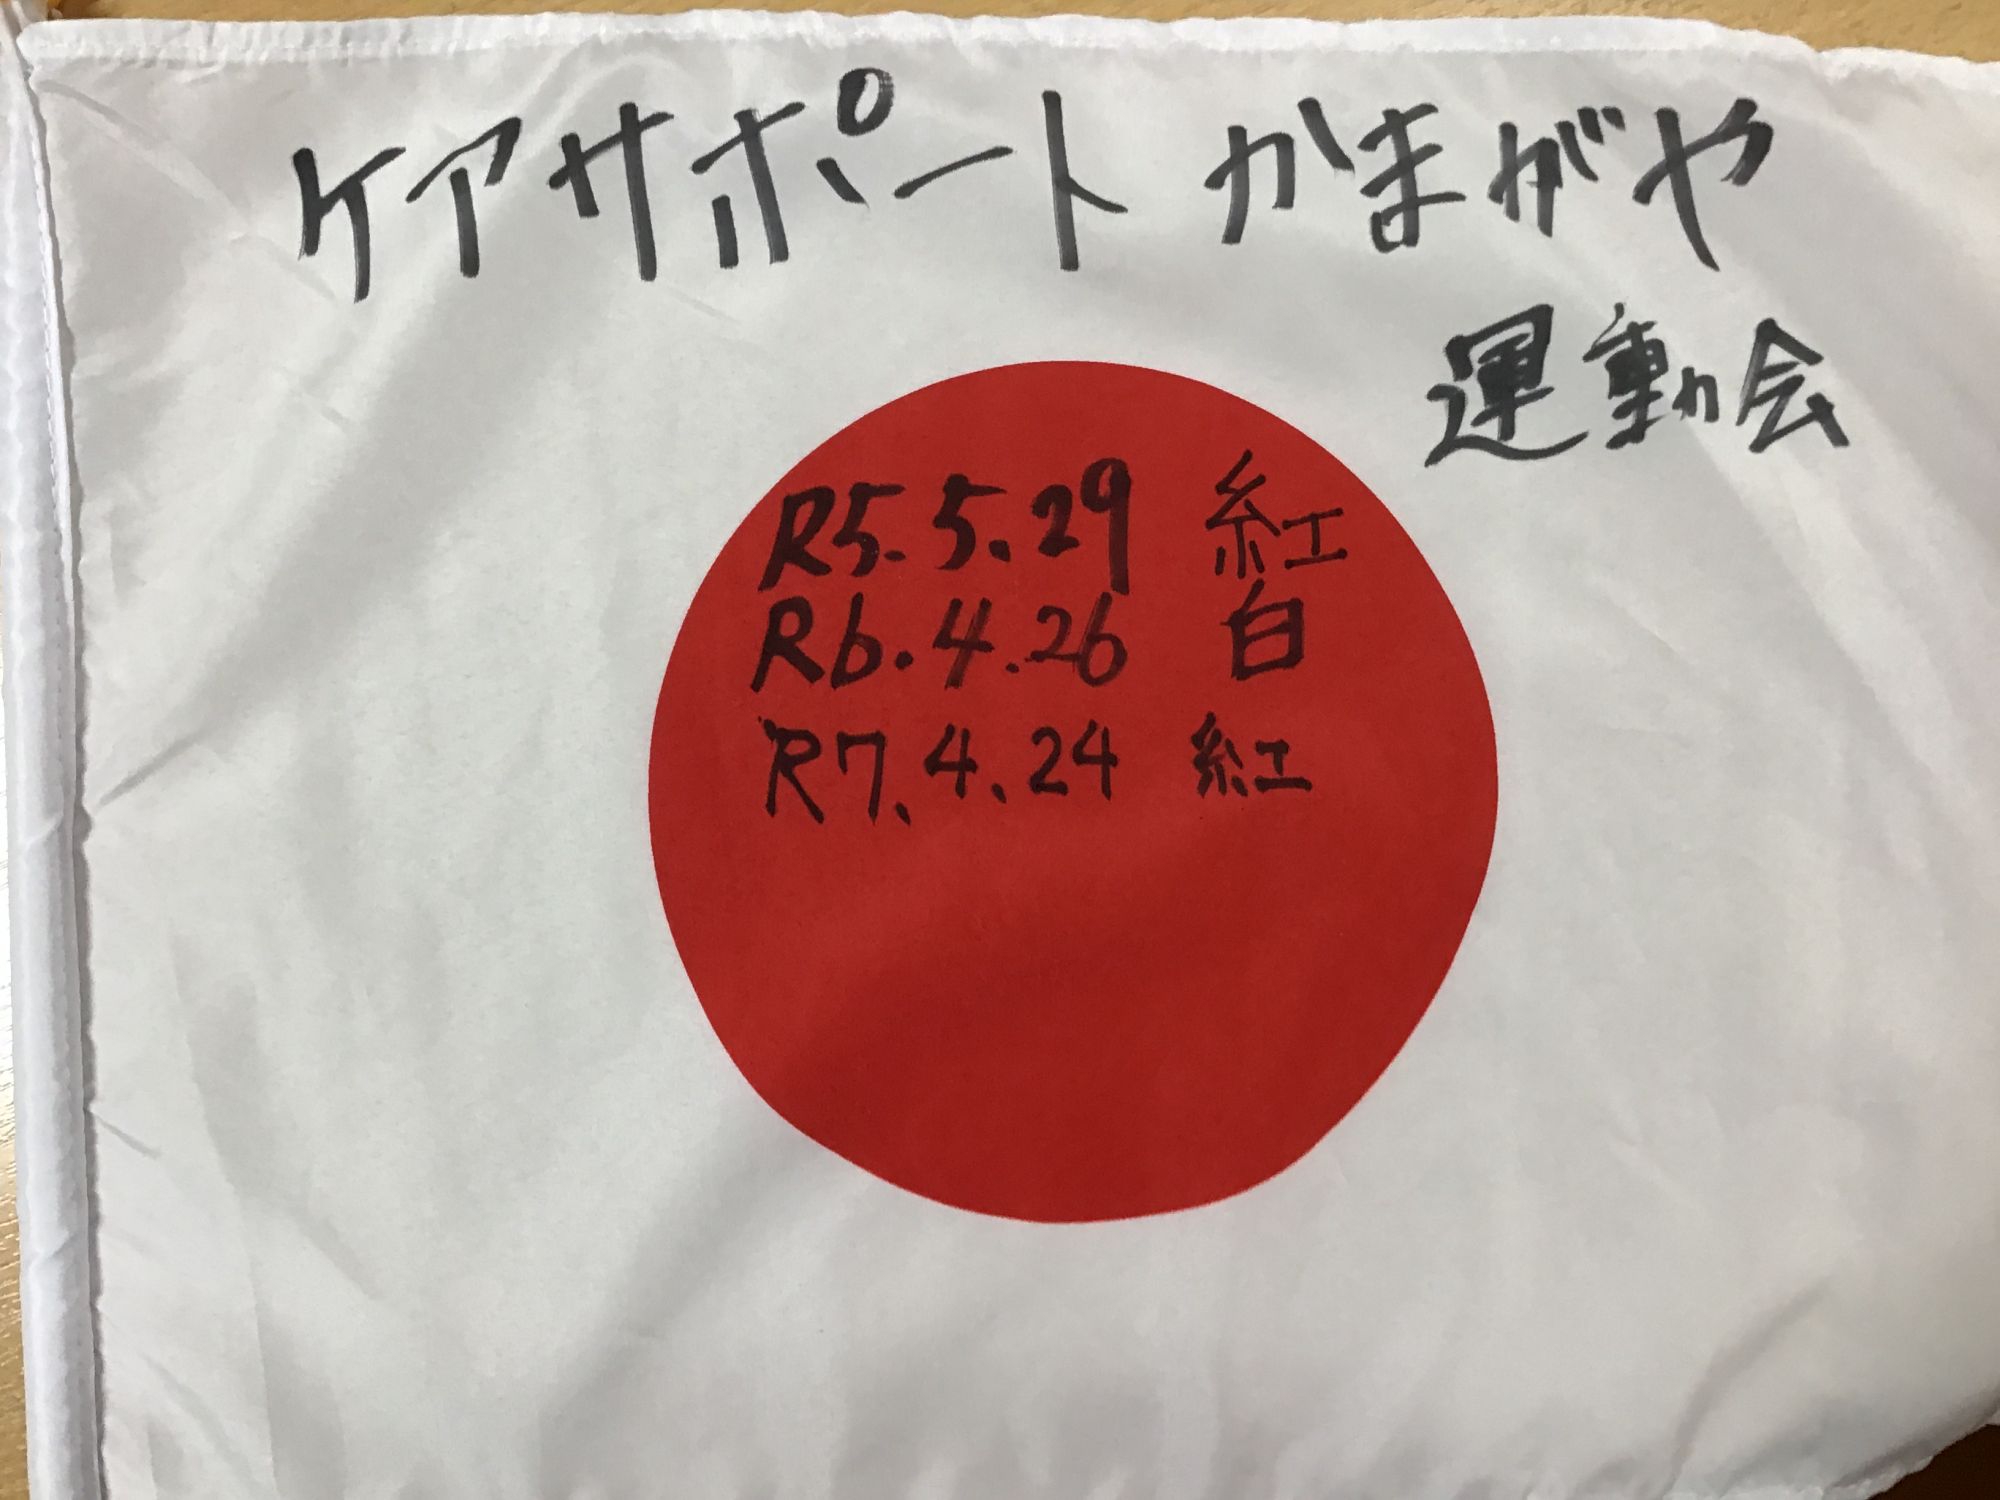 ケアサポートかまがや
運動会
R5.5.29 紅
R6.4.26 白
R7.4.24 紅